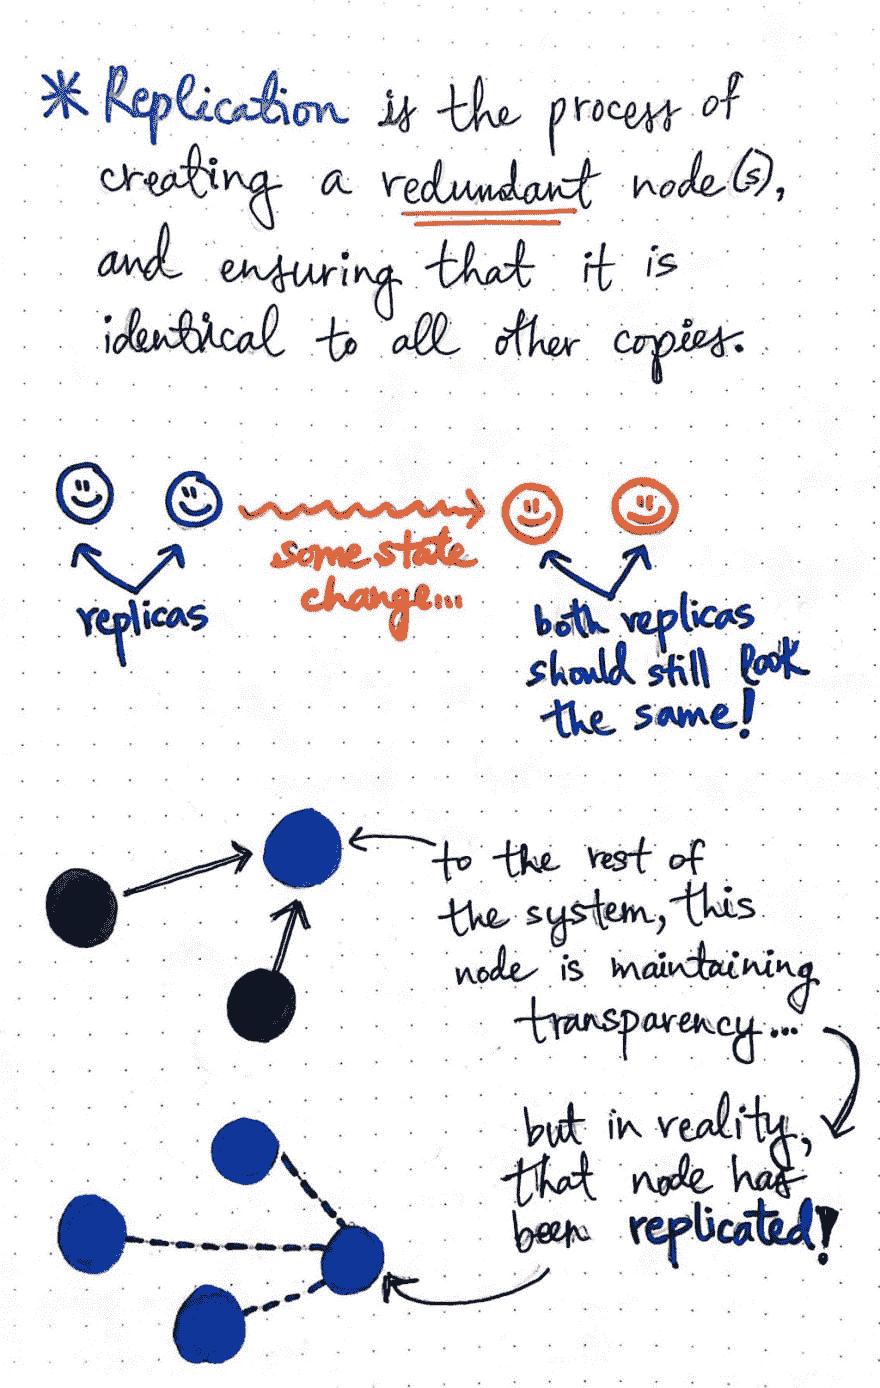 * Replication is the process of
creating a redundant node(s),
and ensuring that it is
identical to all other copies.
some state
change...
replicas
both replicas
should still look
the same!
to the rest of
the system, this
node is maintaining
transparency...
but in reality,
that node has
been replicated!